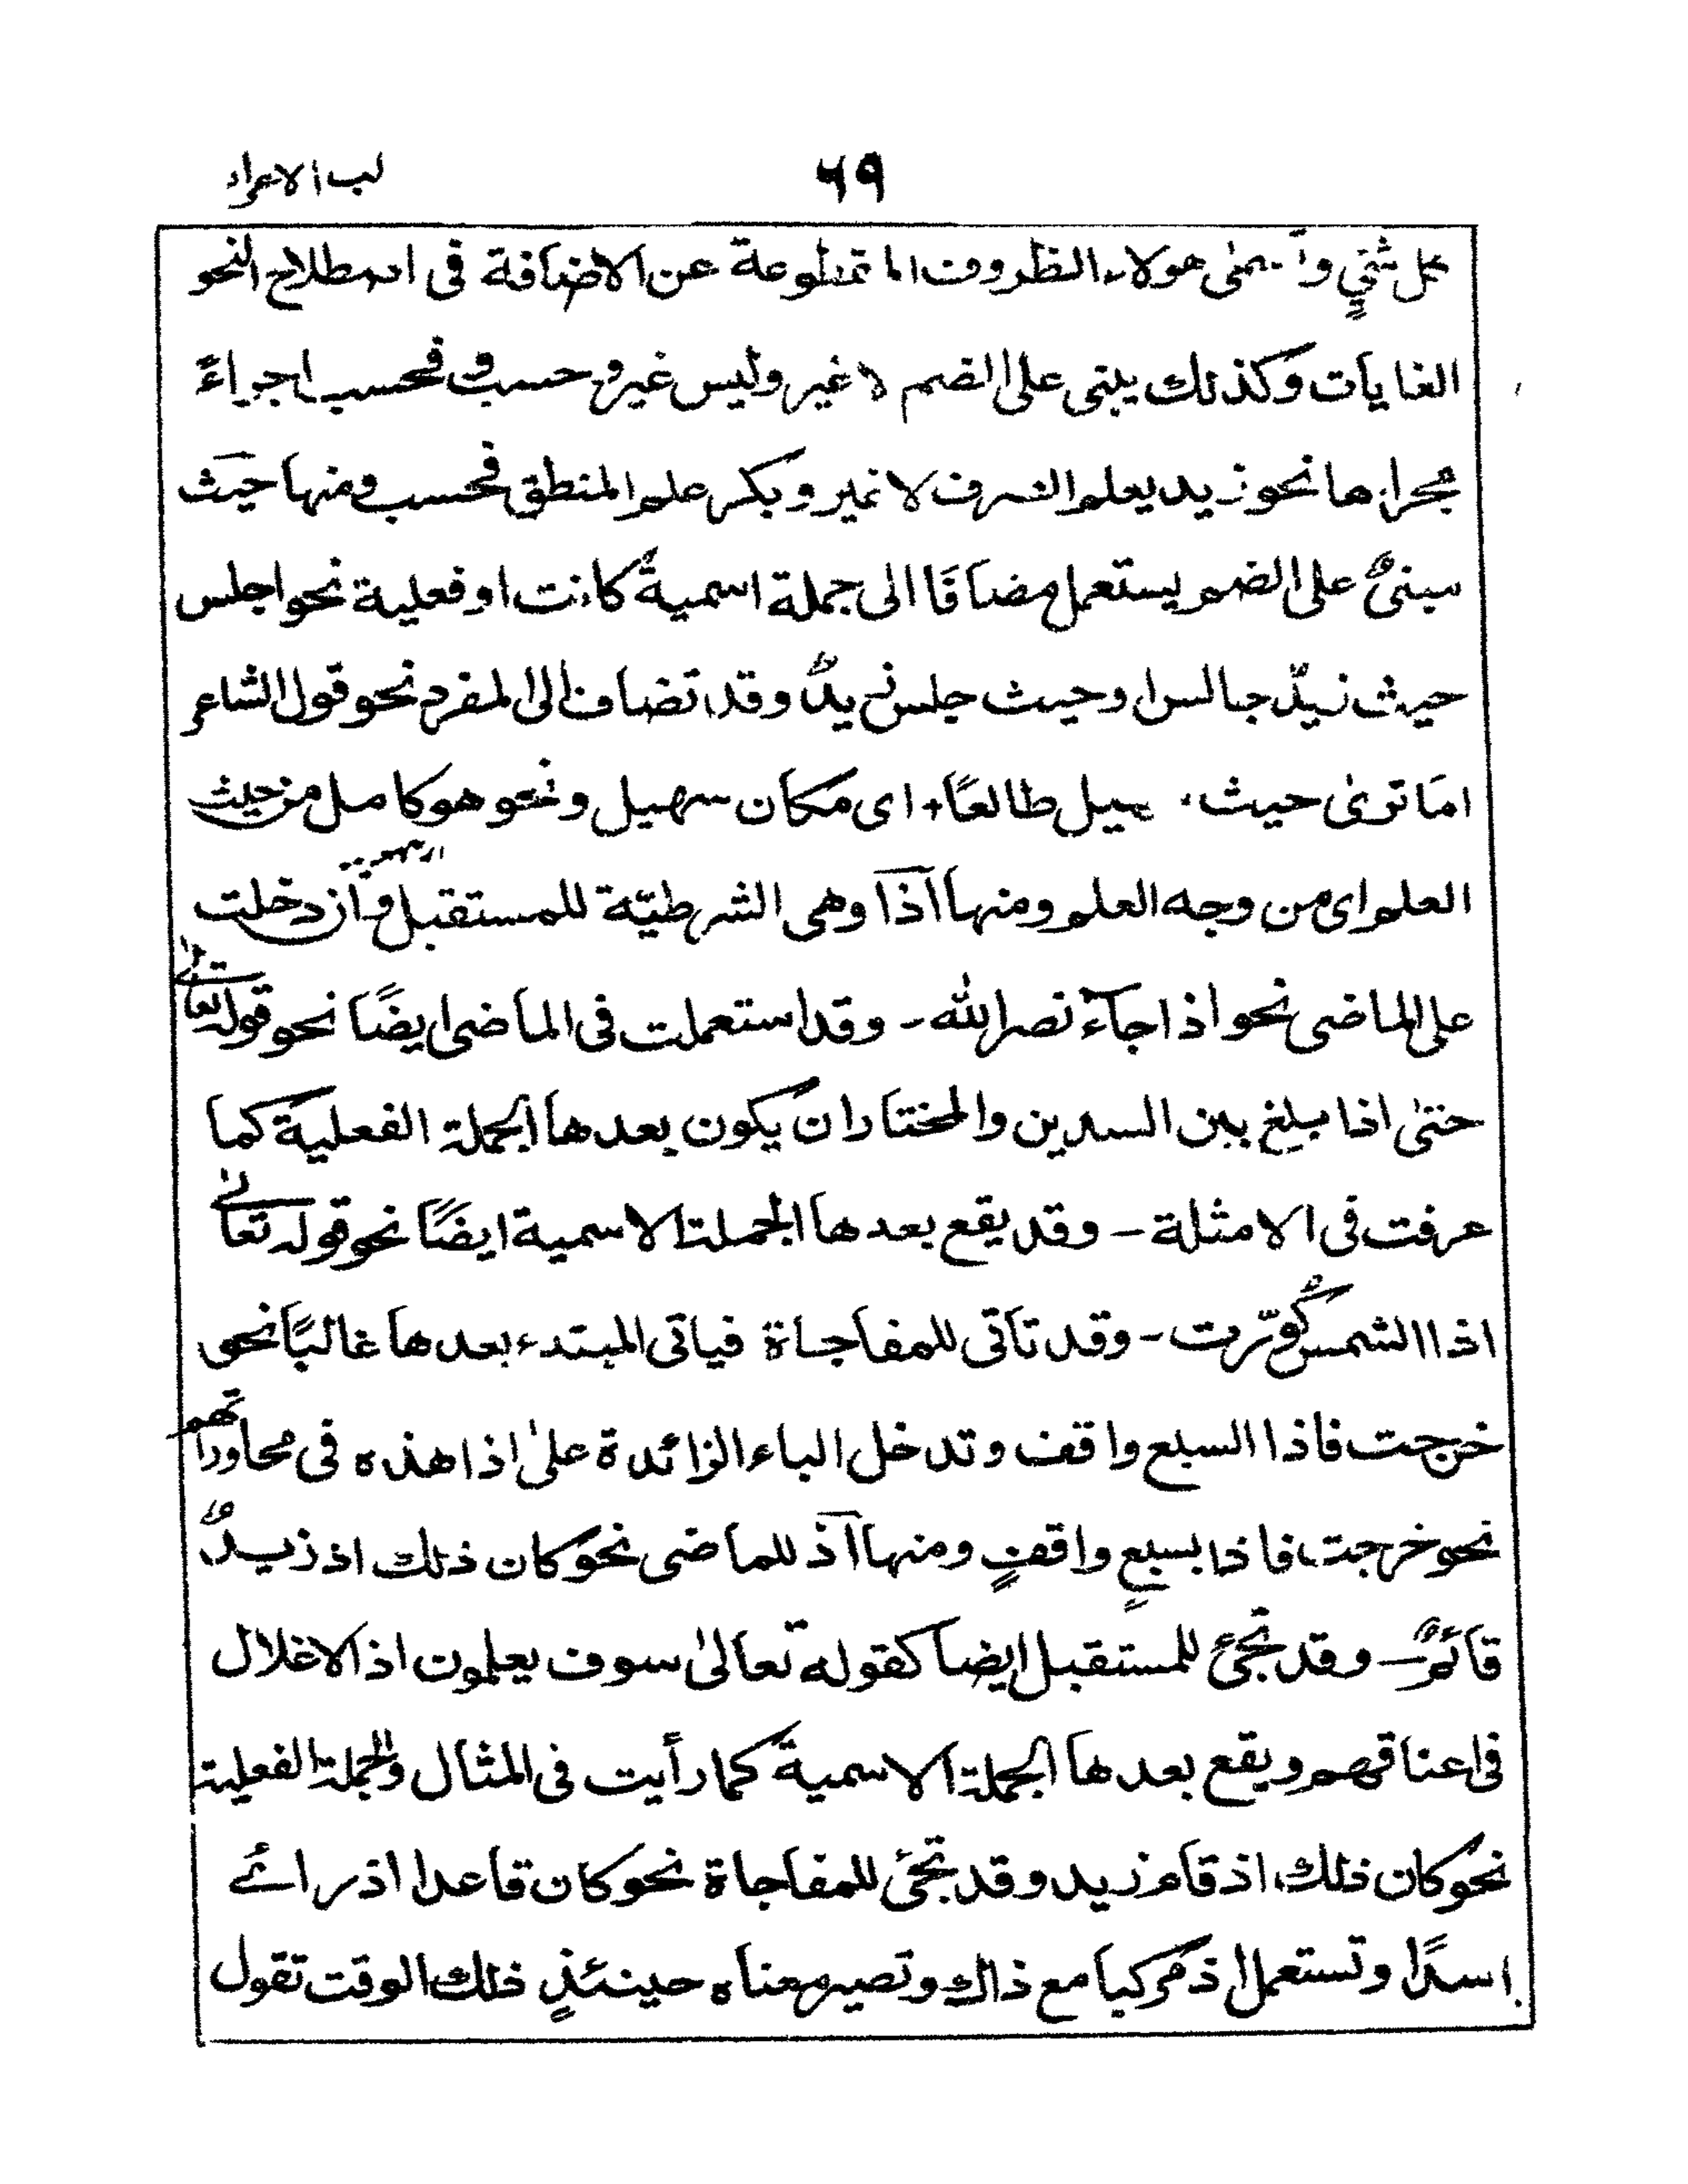 لب الاعراب ٦٩
كل شئيٍ و يسمٰى هولاء الظروف المقطوعة عن الاضافة فى اصطلاح النحو
الغايات وكذلك يبنى على الضم لا غير وليس غير وحسب وفحسب اجراءً
مجراها نحو زيد يعلم الصرف لا غير وبكر علم المنطق فحسب ومنها حيث
مبنىٌ على الضم يستعمل مضافًا الى جملة اسميةٌ كانت او فعلية نحو اجلس
حيث زيدٌ جالس او حيث جلس زيدٌ وقد تضاف الى المفرد نحو قول الشاعر
اما ترىٰ حيث سهيل طالعًا+ اى مكان سهيل ونحو هو كامل من حيث
العلم اى من وجه العلم ومنها اذا وهى الشرطيّة للمستقبل وان دخلت
على الماضى نحو اذا جاءَ نصر الله - وقد استعملت فى الماضى ايضًا نحو قوله تعالىٰ
حتىٰ اذا بلغ بين السدين والمختار ان يكون بعدها الجملة الفعلية كما
عرفت فى الامثلة - وقد يقع بعدها الجملة الاسمية ايضًا نحو قوله تعالىٰ
اذا الشمس كُوّرت - وقد تاتى للمفاجاة فياتى المبتدء بعدها غالبًا نحو
خرجت فاذا السبع واقف وتدخل الباء الزائدة علىٰ اذا هذه فى محاوراتهم
نحو خرجت فاذا بسبعٍ واقفٍ ومنها اذ للماضى نحو كان ذلك اذ زيدٌ
قائمٌ - وقد تجئ للمستقبل ايضا كقوله تعالىٰ سوف يعلمون اذ الاغلال
فى اعناقهم ويقع بعدها الجملة الاسمية كما رأيت فى المثال والجملة الفعلية
نحو كان ذلك اذ قام زيد وقد تجئ للمفاجاة نحو كان قاعدا اذ رائے
اسدًا وتستعمل اذ مركبا مع ذاك وتصير معناه حينئذٍ ذلك الوقت تقول